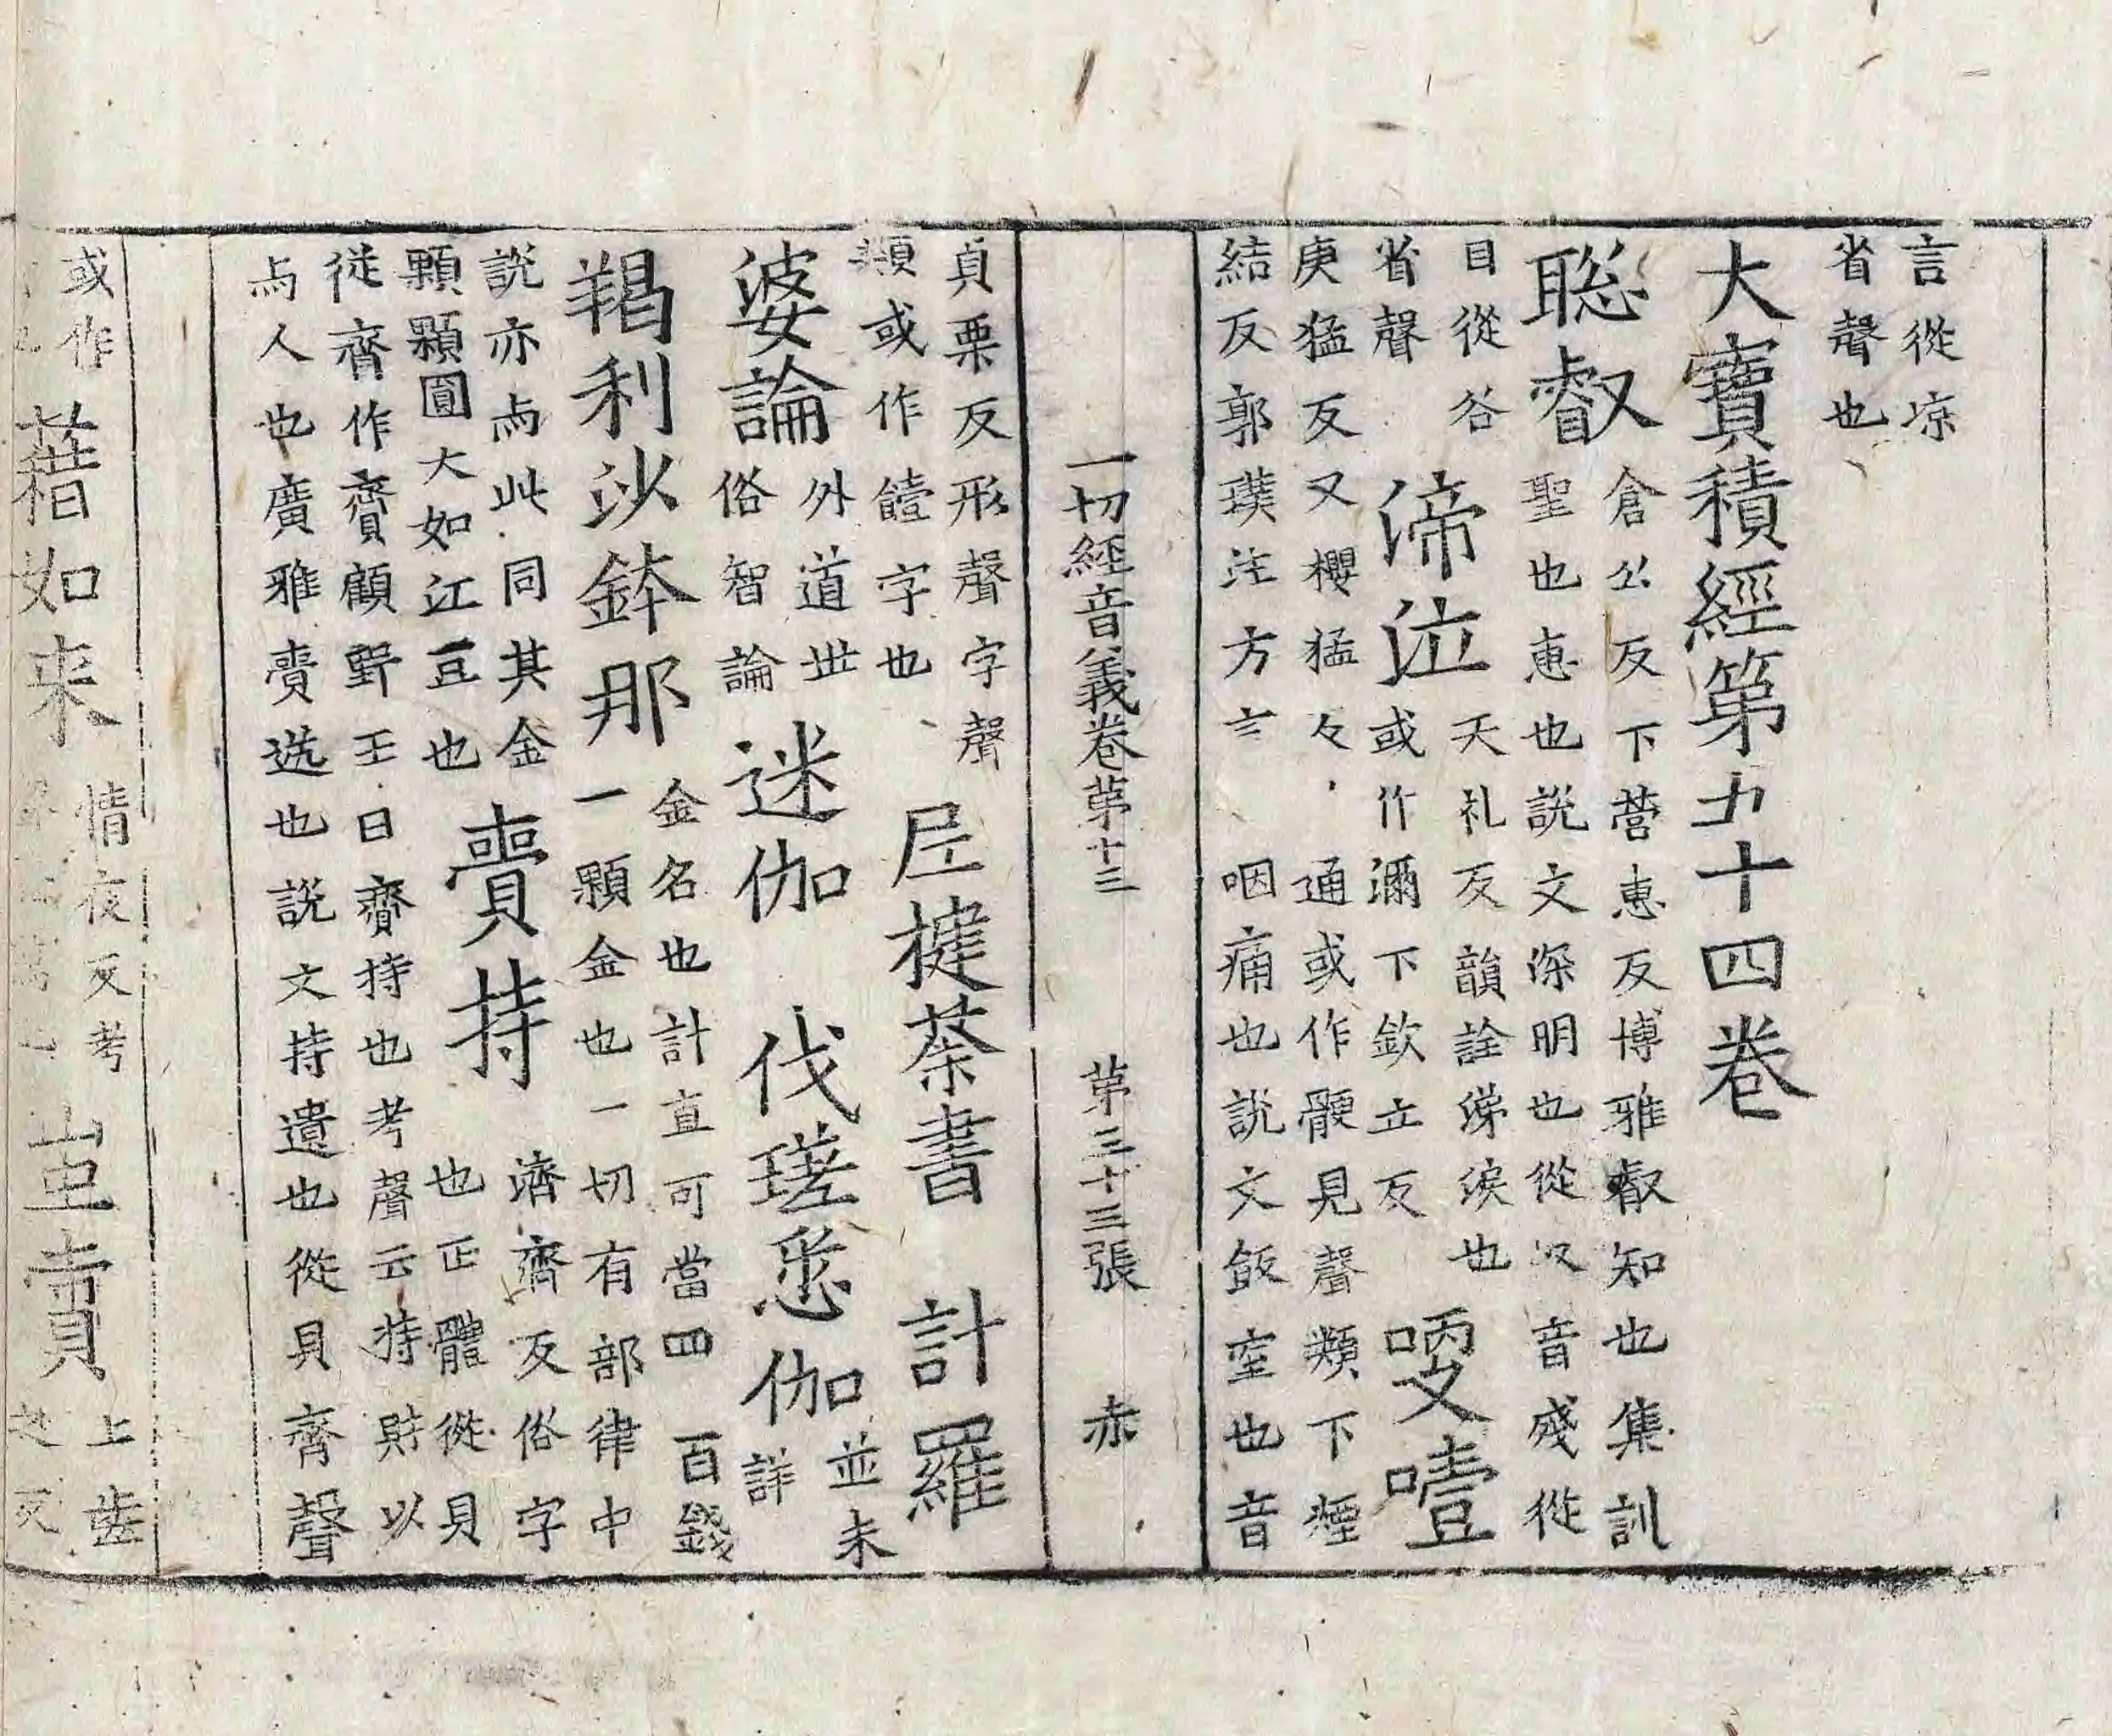 言從涼
省聲也
大寶積經第九十四卷
聡叡倉公反下營惠反博雅叡知也集訓
聖也惠也說文深明也從𣦼音殘從
目從谷
省聲
渧泣天礼反韻詮涕淚也
或作㳽下欽立反
哽噎
庚猛反又櫻猛々通或作骾見聲類下煙
結反郭璞注方言咽痛也說文飯窒也音
一切經音義卷第十三 第三十三張 赤
貞栗反形聲字聲
類或作饐字也
尼揵荼書 計羅
婆論外道世
俗智論
迷伽 伐瑳悉伽並未
詳
羯利沙鉢那金名也計直可當四百錢
一顆金也一切有部律中
說亦為此同其金
顆顆圓大如江豆也
賷持濟齊反俗字
也正體從貝
從齊作齎顧野王曰齎持也考聲云持財以
為人也廣雅賷送也說文持遺也從貝齊聲
或作
藉如来情夜反考
豈賣上齒